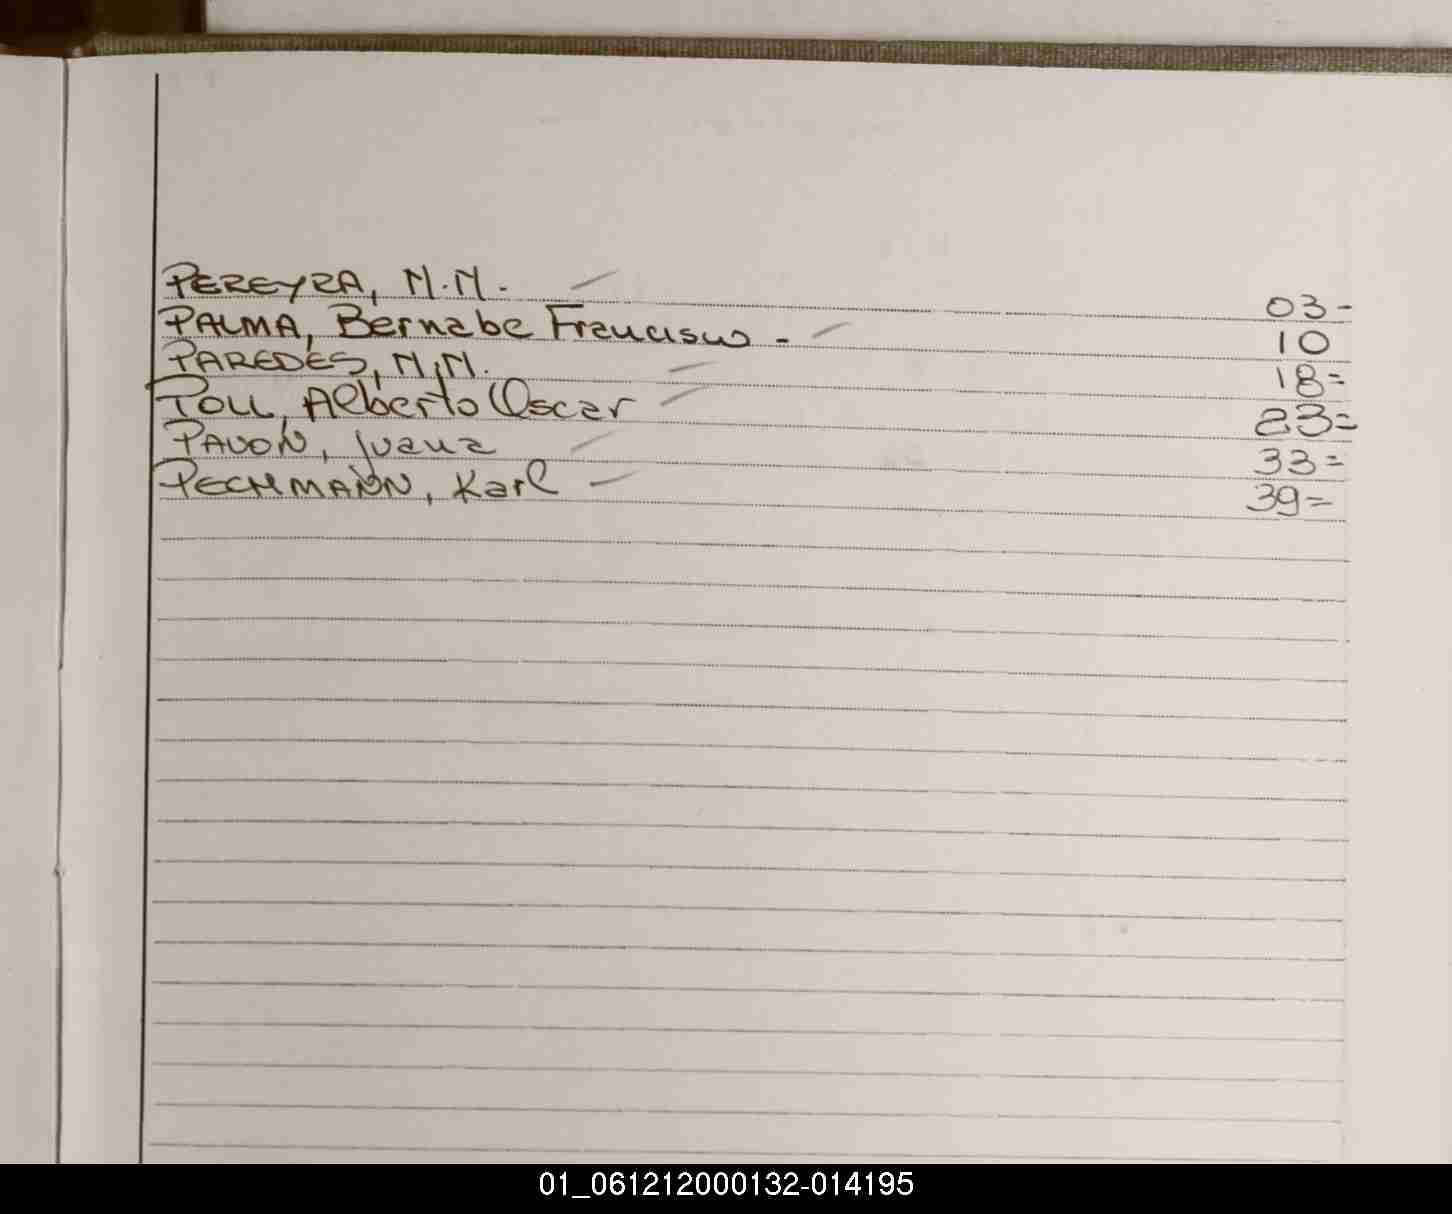 PEREYRA, N.N. - 03-
PALMA, Bernabe Francisco - 10
PAREDES, N.N. 18=
POLL, Alberto Oscar 23=
PAVON, Juana 33=
PECHMANN, Karl 39=
01_061212000132-014195